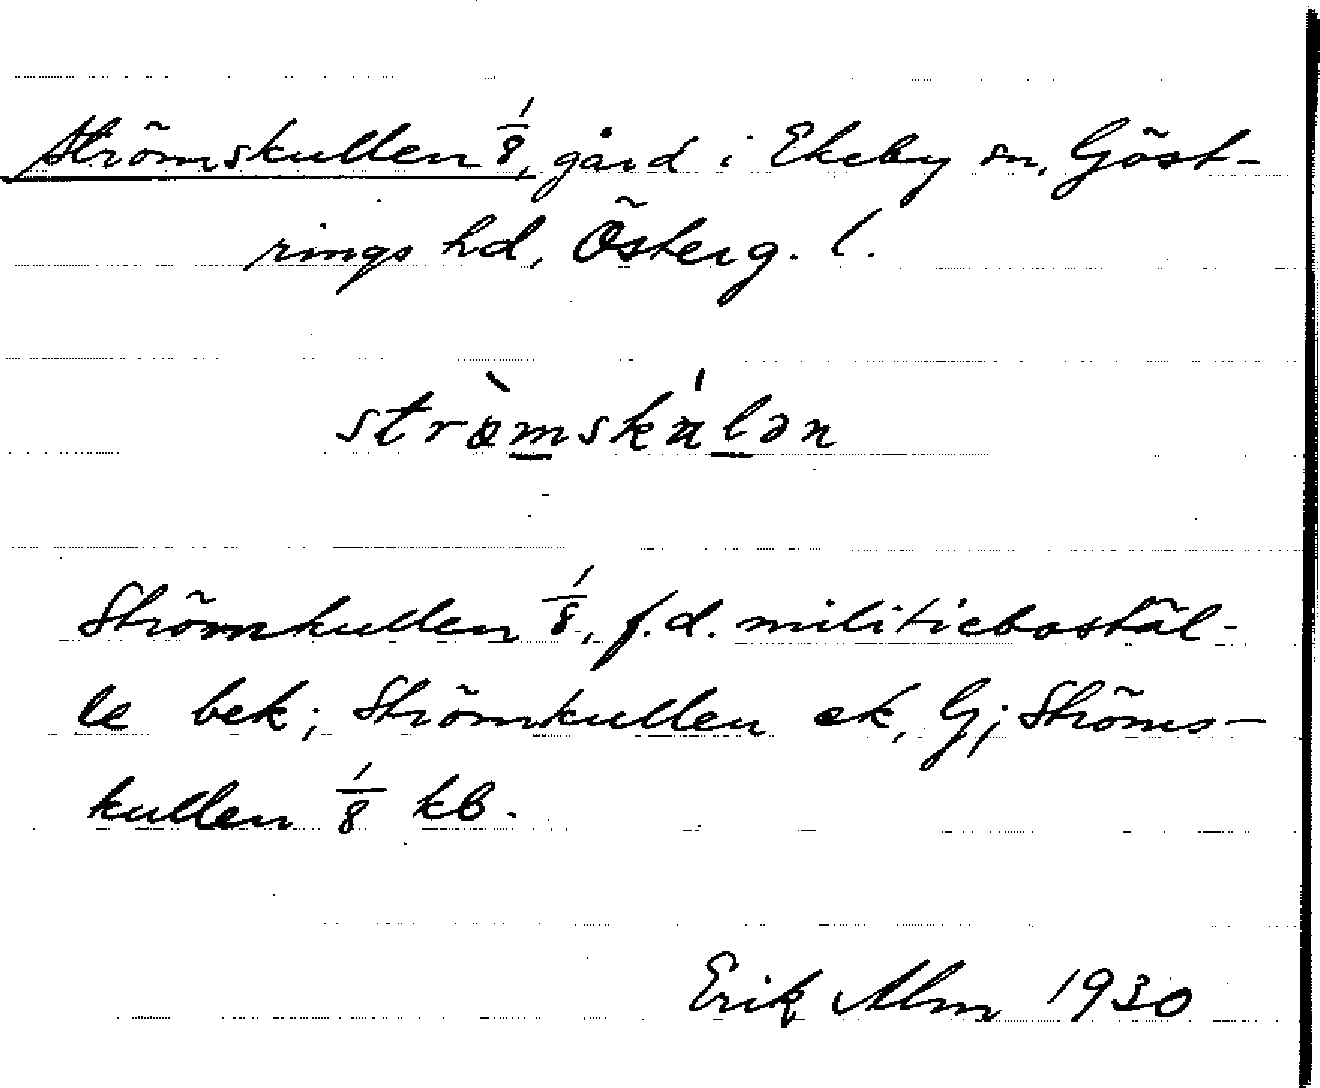 Strömskullen 1/8, gård i Ekeby sn, Göst-
rings hd, Österg. l.
strö̀mskúlən
Strömkullen 1/8, f.d. militiebostäl-
le bek; Strömkullen ek, G; Ströms-
kullen 1/8 kb.
Erik Alm 1930